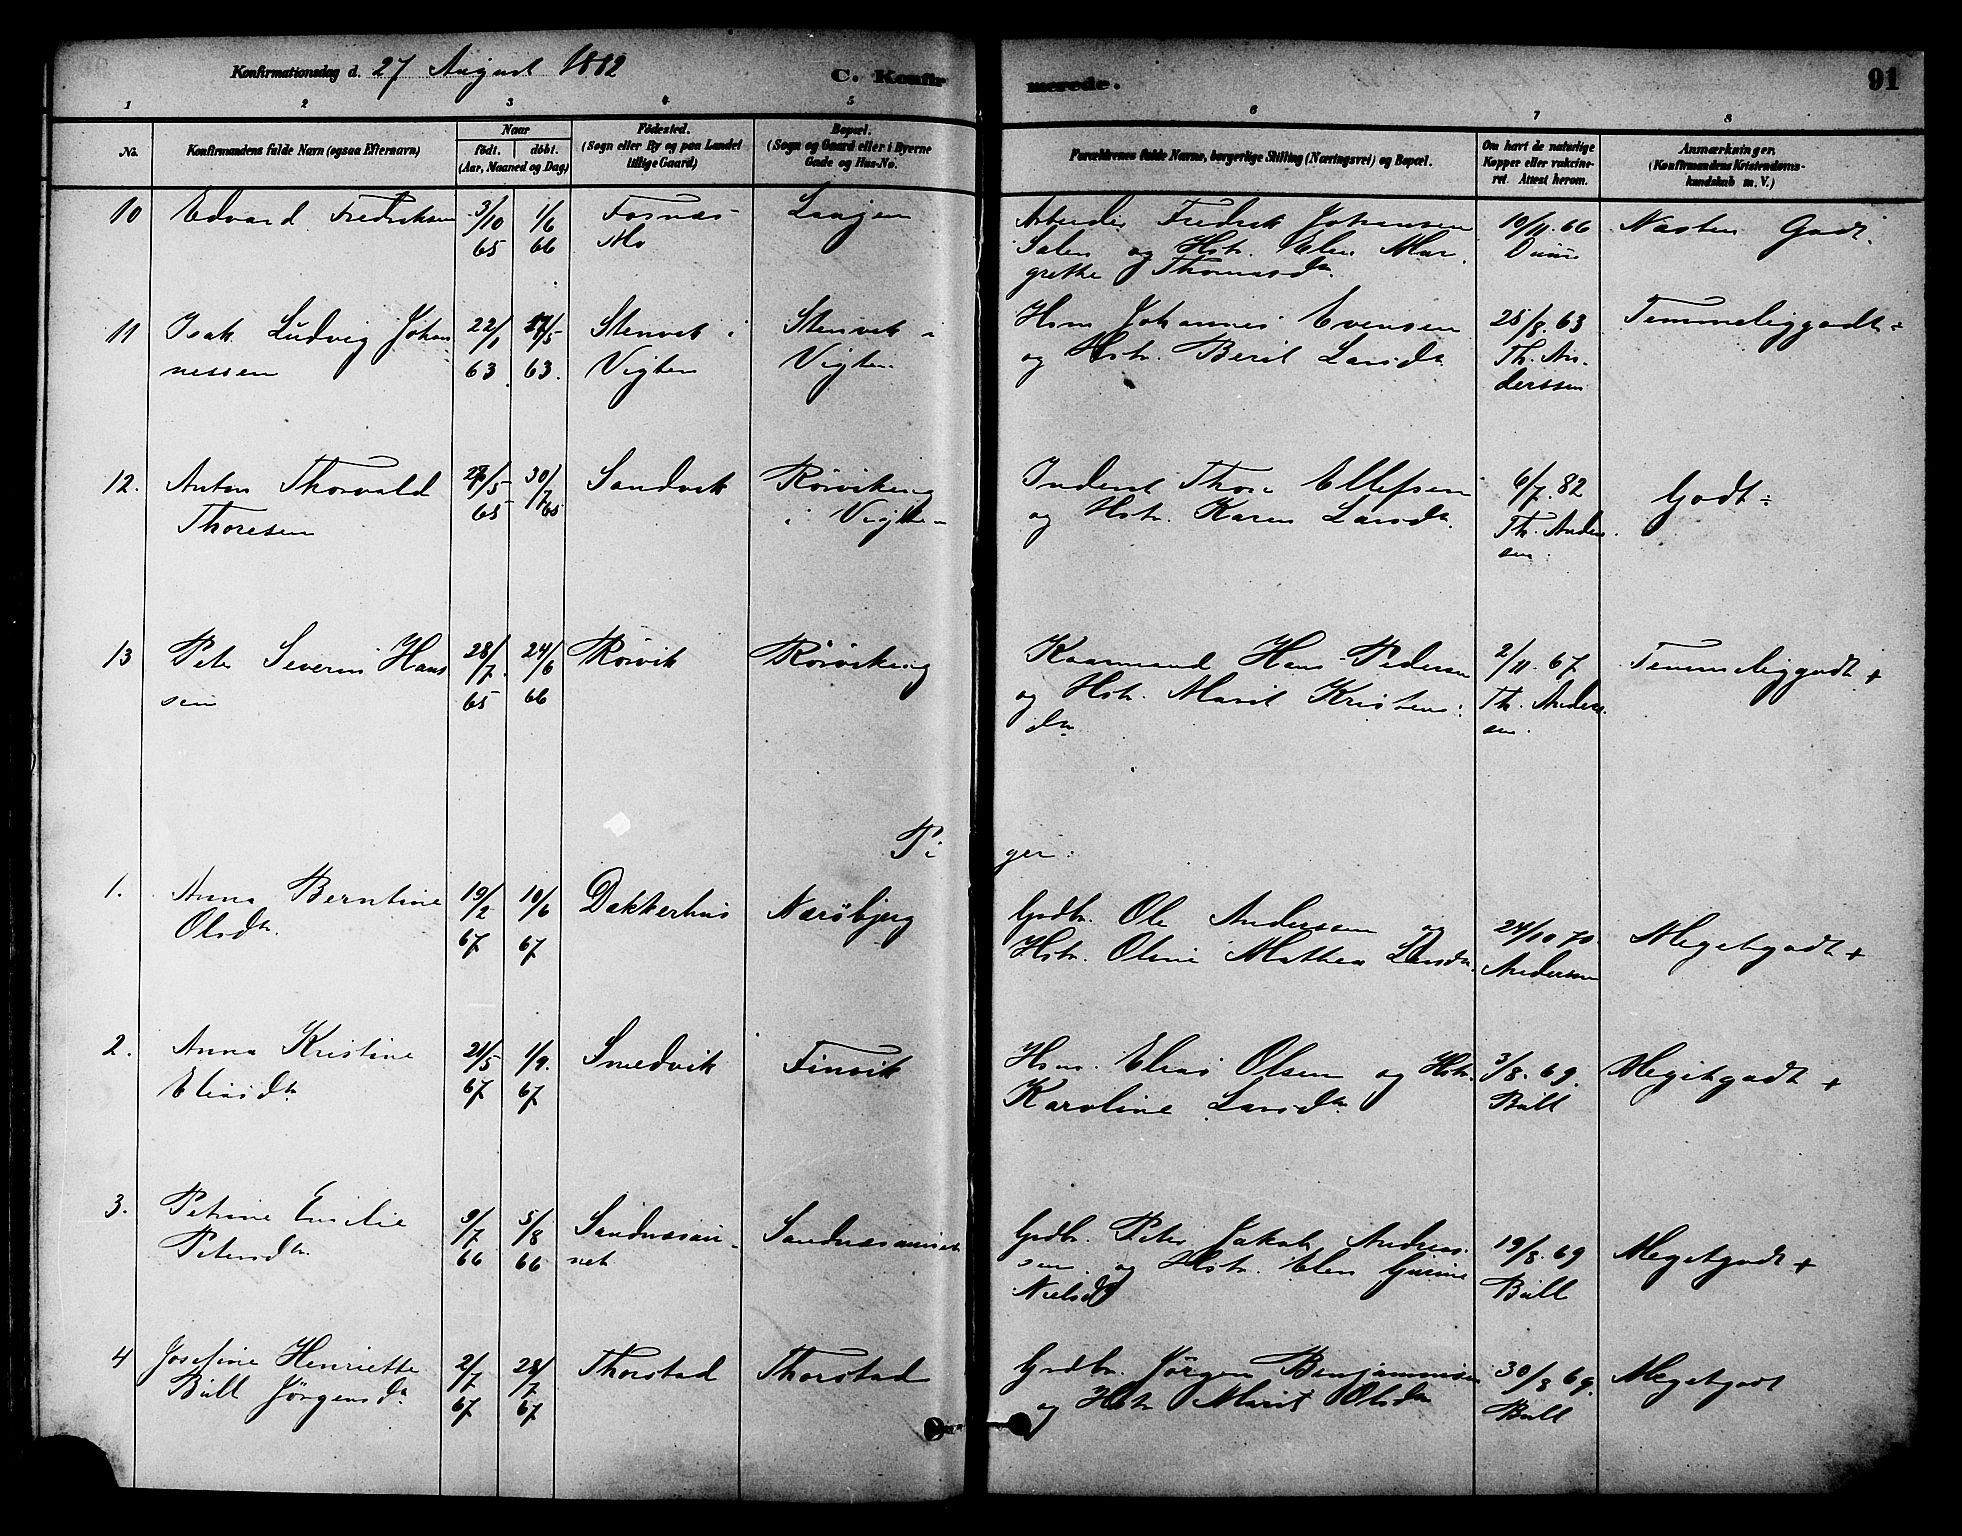 Konfirmationsdag d. 27 August 1882
C. Konfirmerede.
91
1 2 3 4 5 6 7 8
No.
Konfirmandens fulde Navn (ogsaa Efternavn)
Naar
födt. döbt.
(Aar, Maaned og Dag)
Fødested.
(Sogn eller By og paa Landet
tillige Gaard)
Bopæl.
(Sogn og Gaard eller i Byerne
Gade og Hus-No.
Forældrenes fulde Navne, borgerlige Stilling (Næringsvei) og Bopæl.
Om havt de naturlige
Kopper eller vakcine-
ret. Attest herom.
Anmærkninger.
(Konfirmandens Kristendoms-
kundskab m. V.)
10 Edvard Fredriksen 3/10 65 1/6 66
Fosnæs
Mo
Arbeider Fredrik Johansen
Salen og Hstr. Elen Mar-
grethe Thomasdr.
10/11. 66
Næsten Godt.
11 Isak Ludvig Johan
nessen
22/1 63 63.
Stenvik i
Vigten
Stenvik i
Vigten
Hsm Johannes Evensen
og Hstr. Berit Larsdr.
25/8. 63
Th. An-
derssen
Temmeliggodt ÷
12. Anton Thorvald
Thoresen
65 30/7 65
Sandvik
Rörviking
i Vigten
Inderst Thore Ellefsen
og Hstr. Karen Larsdr.
6/7. 82
Th. Anders
sen.
Godt ÷
13 Peter Severin Hans
sen
28/7. 65 24/6 66
Rörvik
Rörviking
Kaarmand Hans Pedersen
og Hstr. Marit Kristens-
dr.
2/11. 67
Th. Anders
sen.
Temmeliggodt +
Piger:
1. Anna Berntine
Olsdr.
19/2 67 10/6 67
Dekkerhus
Næröbjerg
Grdbr. Ole Andersen og
Hstr. Oline Mathea Larsdr.
24/10 70.
Anderssen
Megetgodt +
2. Anna Kristine
Eliasdr.
21/5 67 1/9. 67
Smedvik
Finvik
Hsm. Elias Olsen og Hstr.
Karoline Larsdr.
3/8. 69.
Bull
Megetgodt +
3. Petrine Emilie
Petersdr.
9/7 66 5/8 66
Sandnæsau-
net
Sandnæsaunet
Grdbr. Peter Jakob Andreas-
sen og Hstr. Elen Gurine
Nielsd
19/8. 69
Bull
Megetgodt +
4 Josefine Henriette
Bull Jørgensdr.
2/7 67 28/7 67
Thorstad
Thorstad
Grdbr. Jørgen Benjaminsen
og Hstr Marit Olsdr
30/8 69.
Bull
Megetgodt